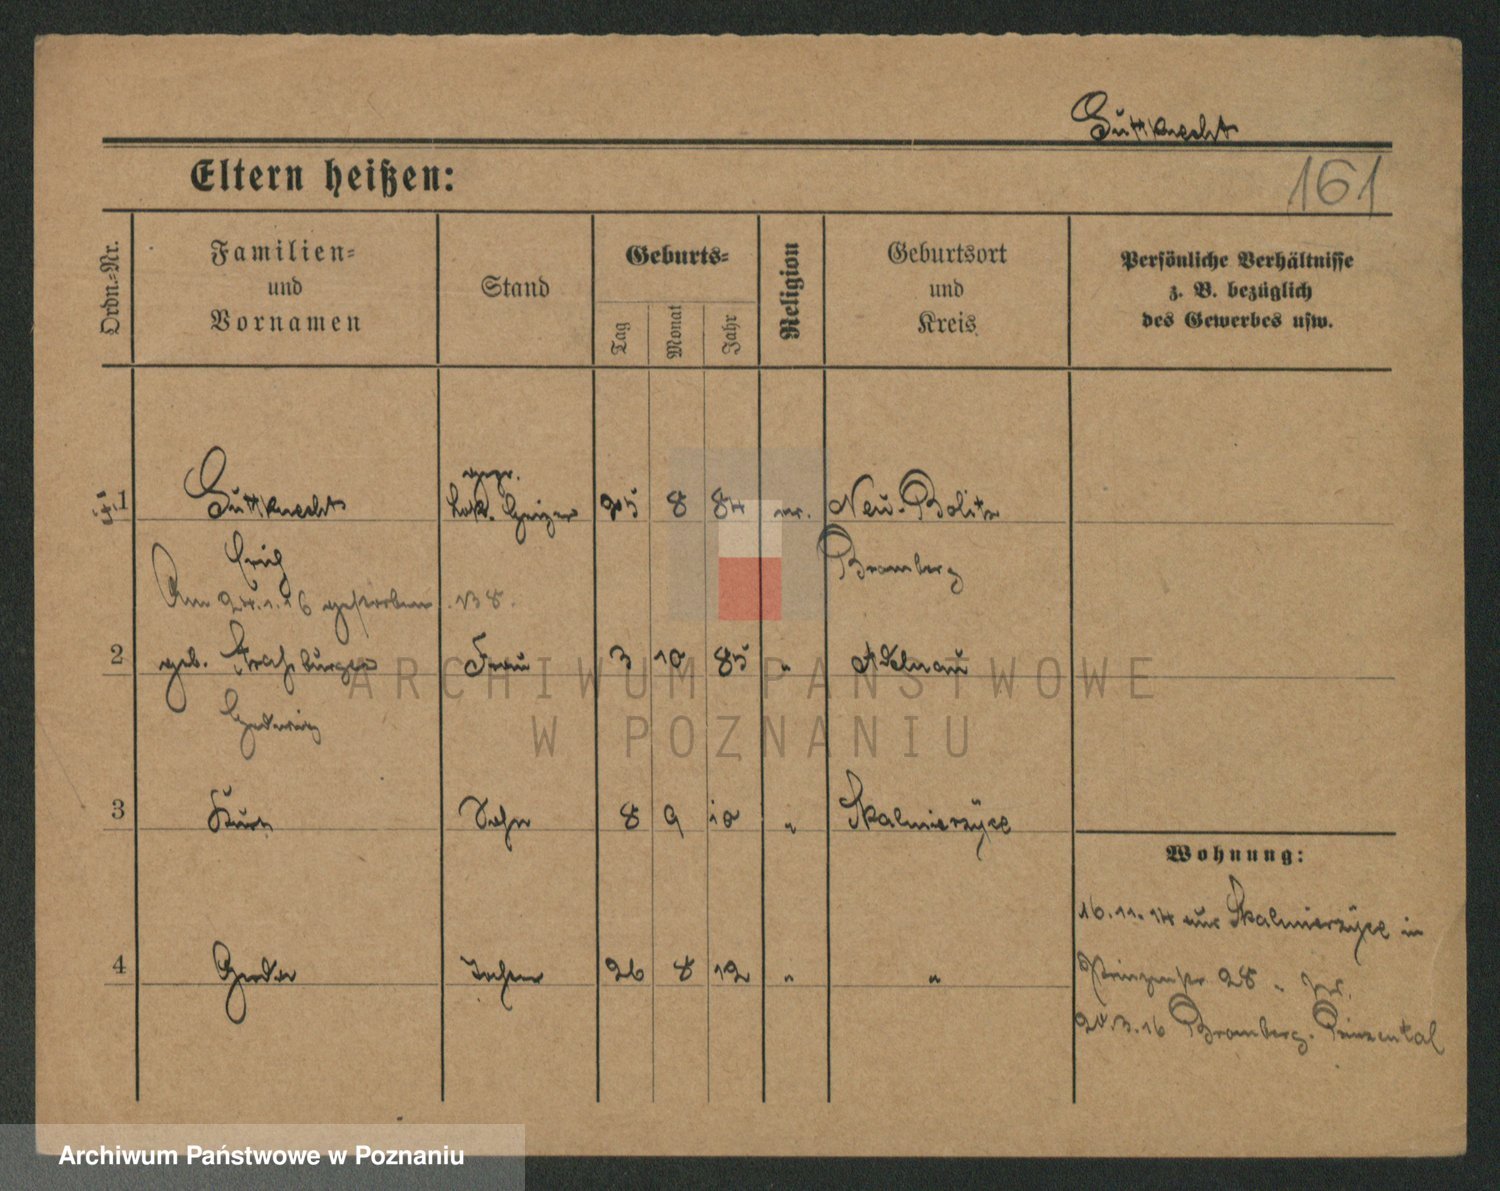 Guttknecht
Eltern heißen:
161
Ordn.-Nr.
Familien-
und
Vornamen
Stand
Geburts-
Tag
Monat
Jahr
Religion
Geburtsort
und
Kreis
Persönliche Verhältnisse
z. B. bezüglich
des Gewerbes usw.
gepr.
1 Guttknecht Lok. Heizer 25 8 84 ev.
Erich Bromberg
Am 24.1.16 gestorben
2 geb. Frau 3 10 85 " Adelnau
Hedwig
3 Kurt Sohn 8 9 10 " Skalmierzyce
4 Gerda Tochter 26 8 12 " "
Wohnung:
16.11.14 aus Skalmierzyce in
28
Bromberg-Prinzental
ARCHIWUM PAŃSTWOWE
W POZNANIU
Archiwum Państwowe w Poznaniu